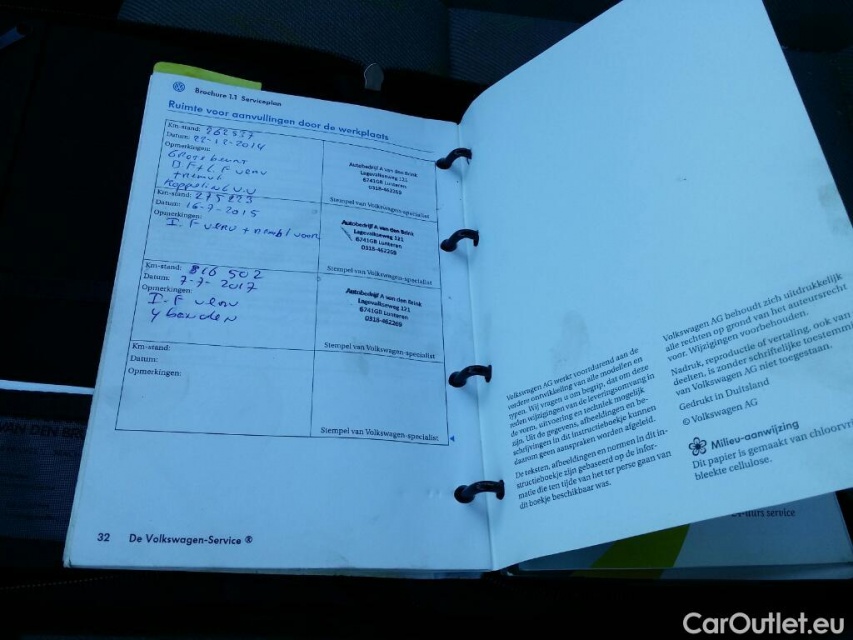 Brochure 1.1 Serviceplan
Ruimte voor aanvullingen door de werkplaats
Km-stand: 262537
Datum: 22-12-2014
Opmerkingen:
Grote beurt
+
Autobedrijf A van den Brink
Lagevalkseweg 121
6741GB Lunteren
0318-462269
Stempel van Volkswagen-specialist
Km-stand: 275223
Datum: 16-7-2015
Opmerkingen:
Autobedrijf A van den Brink
Lagevalkseweg 121
6741GB Lunteren
0318-462269
Stempel van Volkswagen-specialist
Km-stand: 816 502
Datum: 7-7-2017
Opmerkingen:
4 banden
Autobedrijf A van den Brink
Lagevalkseweg 121
6741GB Lunteren
0318-462269
Stempel van Volkswagen-specialist
Km-stand:
Datum:
Opmerkingen:
Stempel van Volkswagen-specialist
32 De Volkswagen-Service ®
Volkswagen AG werkt voortdurend aan de
verdere ontwikkeling van alle modellen en
typen. Wij vragen u om begrip, dat om deze
reden wijzigingen van de leveringsomvang in
de vorm, uitvoering en techniek mogelijk
zijn. Uit de gegevens, afbeeldingen en be-
schrijvingen in dit instructieboekje kunnen
daarom geen aanspraken worden afgeleid.
De teksten, afbeeldingen en normen in dit in-
structieboekje zijn gebaseerd op de infor-
matie die ten tijde van het ter perse gaan van
dit boekje beschikbaar was.
Volkswagen AG behoudt zich uitdrukkelijk
alle rechten op grond van het auteursrecht
voor. Wijzigingen voorbehouden.
Nadruk, reproductie of vertaling, ook van
deelen, is zonder schriftelijke toestemmi
van Volkswagen AG niet toegestaan.
Gedrukt in Duitsland
© Volkswagen AG
Milieu-aanwijzing
Dit papier is gemaakt van chloorvr
bleekte cellulose.
service
VAN DEN BR
CarOutlet.eu